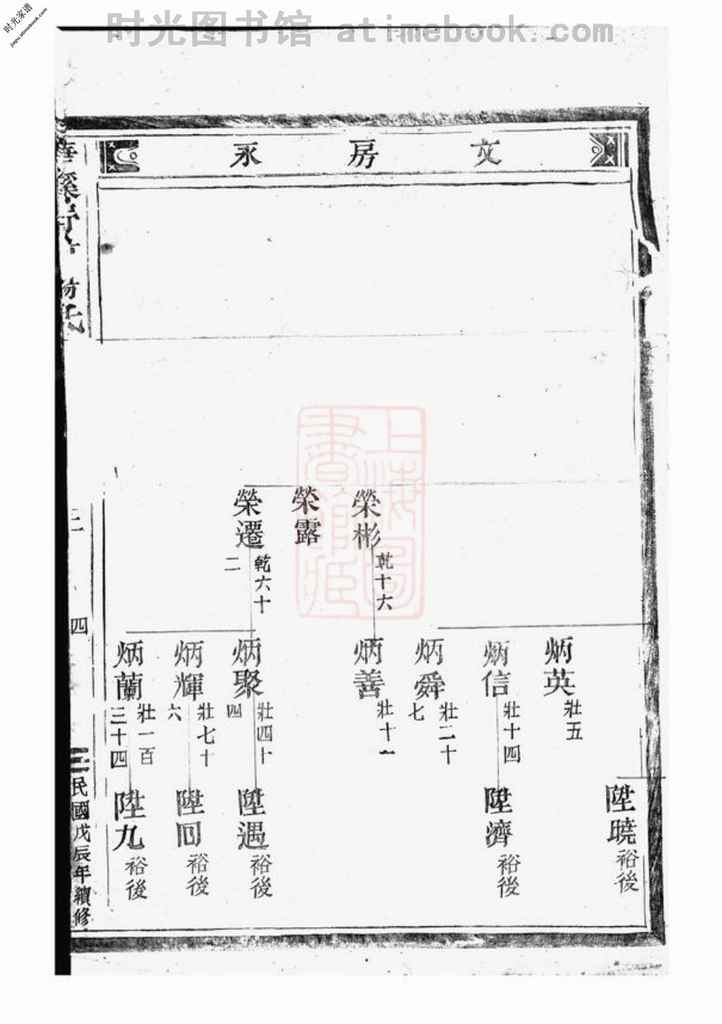 时光图书馆 atimebook.com
时光家谱
文房永
陞曉
裕後
炳英
壯五
炳信
壯十四
陞濟
裕後
炳舜
壯二十
七
榮彬
乾十六
炳善
壯十一
榮露
榮遷
乾六十
二
炳聚
壯四十
四
陞遇
裕後
炳輝
壯七十
六
陞回
裕後
炳蘭
壯一百
三十四
陞九
裕後
四
民國戊辰年續修
上海圖書館藏